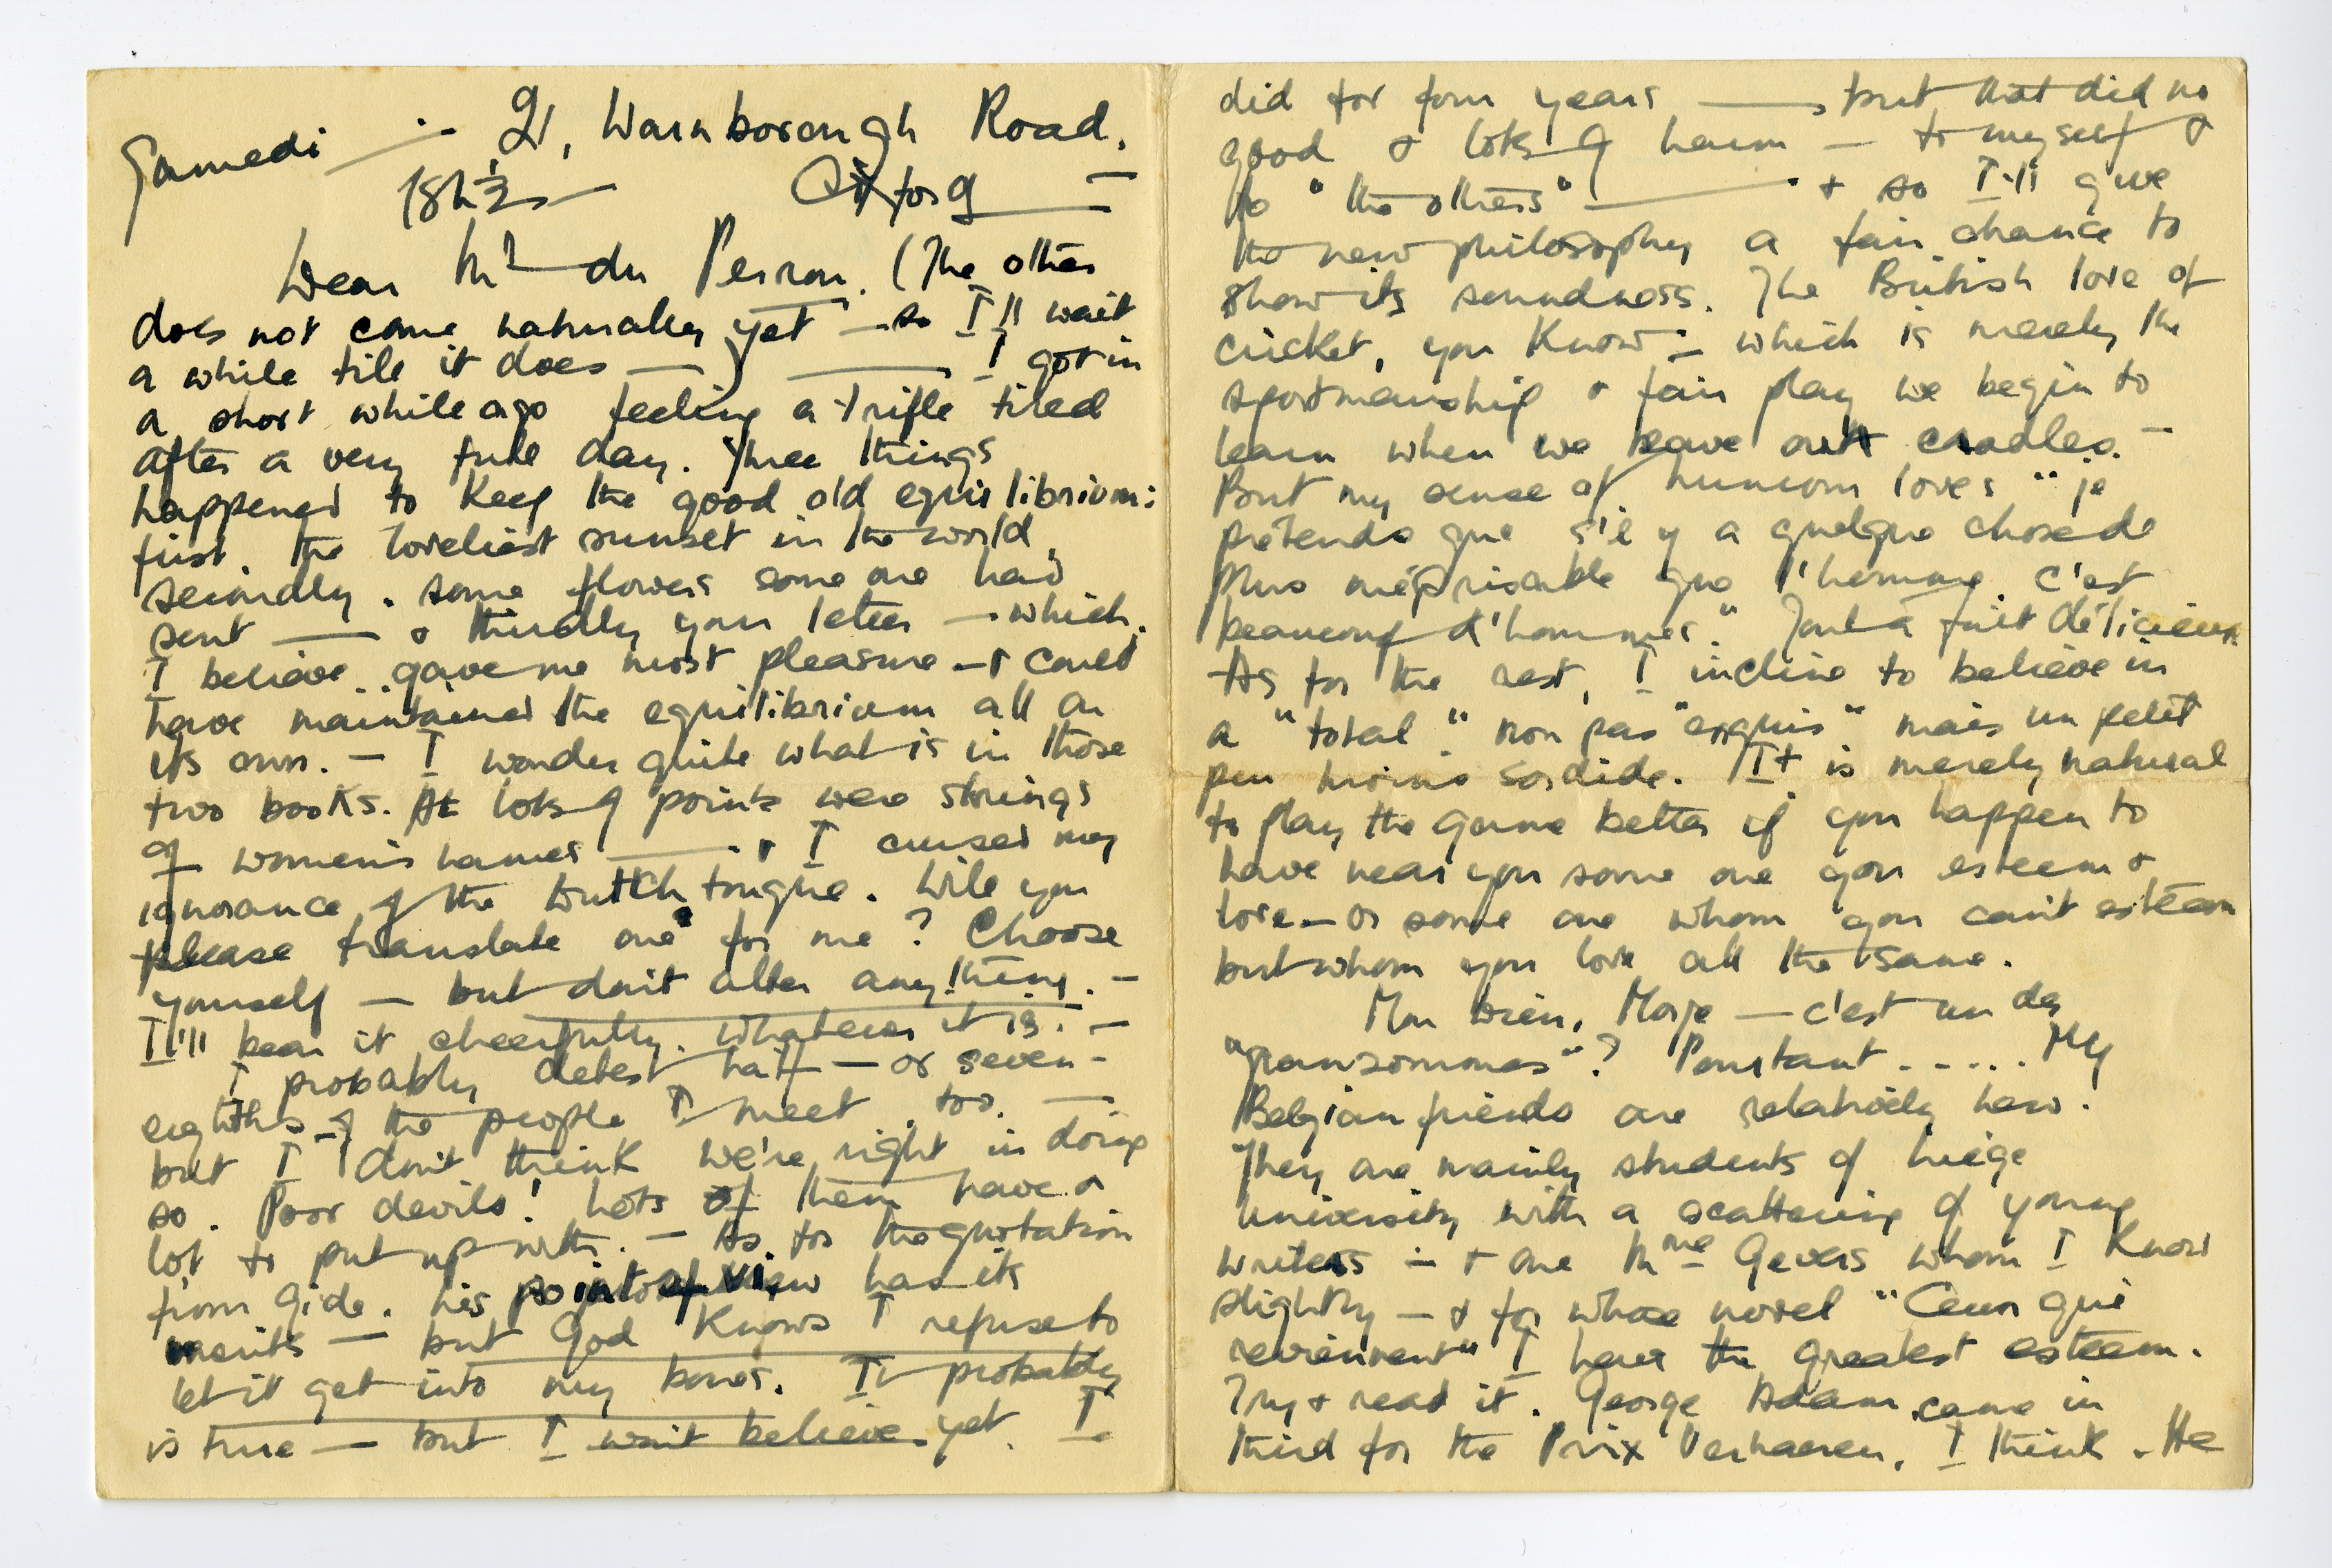 Samedi — 21, Warnborough Road.
18h½ — Oxford —
Dear Mr du Perron. (The other
does not come naturally yet — so I'll wait
a while till it does —) — I got in
a short while ago feeling a trifle tired
after a very full day. Three things
happened to keep the good old equilibrium:
first. the loveliest sunset in the world,
secondly. some flowers some one had
sent — & thirdly your letter — which.
I believe.. gave me most pleasure — & could
have maintained the equilibrium all on
its own. — I wonder quite what is in those
two books. At lots of points were strings
of women's names — & I cursed my
ignorance of the Dutch tongue. Will you
please translate one for me? Choose
yourself — but don't alter anything. —
I'll bear it cheerfully. whatever it is. —
I probably detest half — or seven-
eighths of the people I meet, too. —
but I don't think we're right in doing
so. Poor devils! Lots of them have a
lot to put up with. — As for the quotation
from Gide. his point of view has its
merits — but God knows I refuse to
let it get into my bones. It probably
is true — but I won't believe yet. I
did for four years — but that did no
good & lots of harm — to myself &
to "the others" — & so I'll give
the new philosophy a fair chance to
show its soundness. The British love of
cricket, you know — which is merely the
sportmanship & fair play we begin to
learn when we leave our cradles. —
But my sense of humour loves "je
prétends que s'il y a quelque chose de
plus méprisable que l'homme c'est
beaucoup d'hommes." Tout à fait délicieux.
As for the rest, I incline to believe in
a "total" non pas "exquis" mais un petit
peu moins sordide. It is merely natural
to play the game better if you happen to
have near you some one you esteem &
love — or some one whom you can't esteem
but whom you love all the same.
Mon bien, Marje — c'est un des
"gransommes"? Pourtant ..... My
Belgian friends are relatively new.
They are mainly students of Liège
University with a scattering of young
writers — & one Mme Gevers whom I know
slightly — & for whose novel "Ceux qui
reviennent" I have the greatest esteem.
Try & read it. George Adam came in
third for the Prix Verhaeren, I think. He